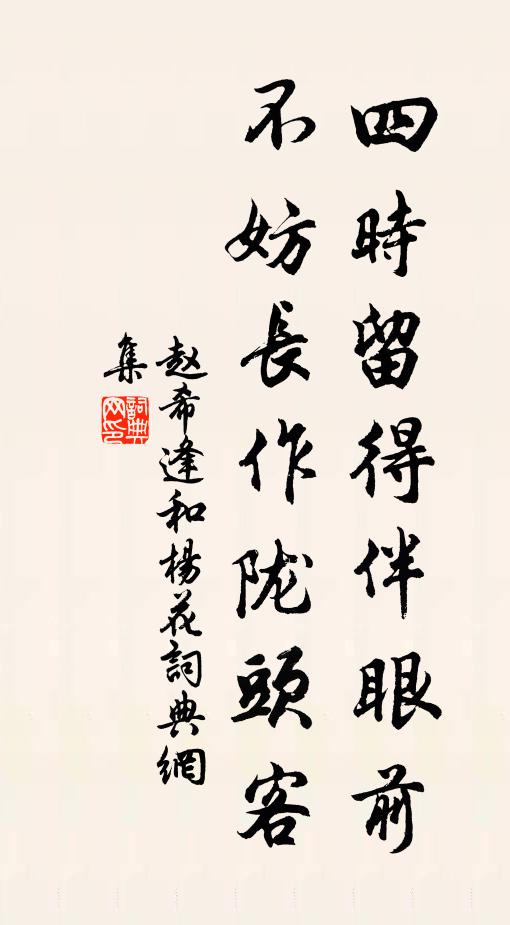 四時留得伴眼前
不妨長作陇頭客
赵希逢和楊花詞典網
集
詞典網印